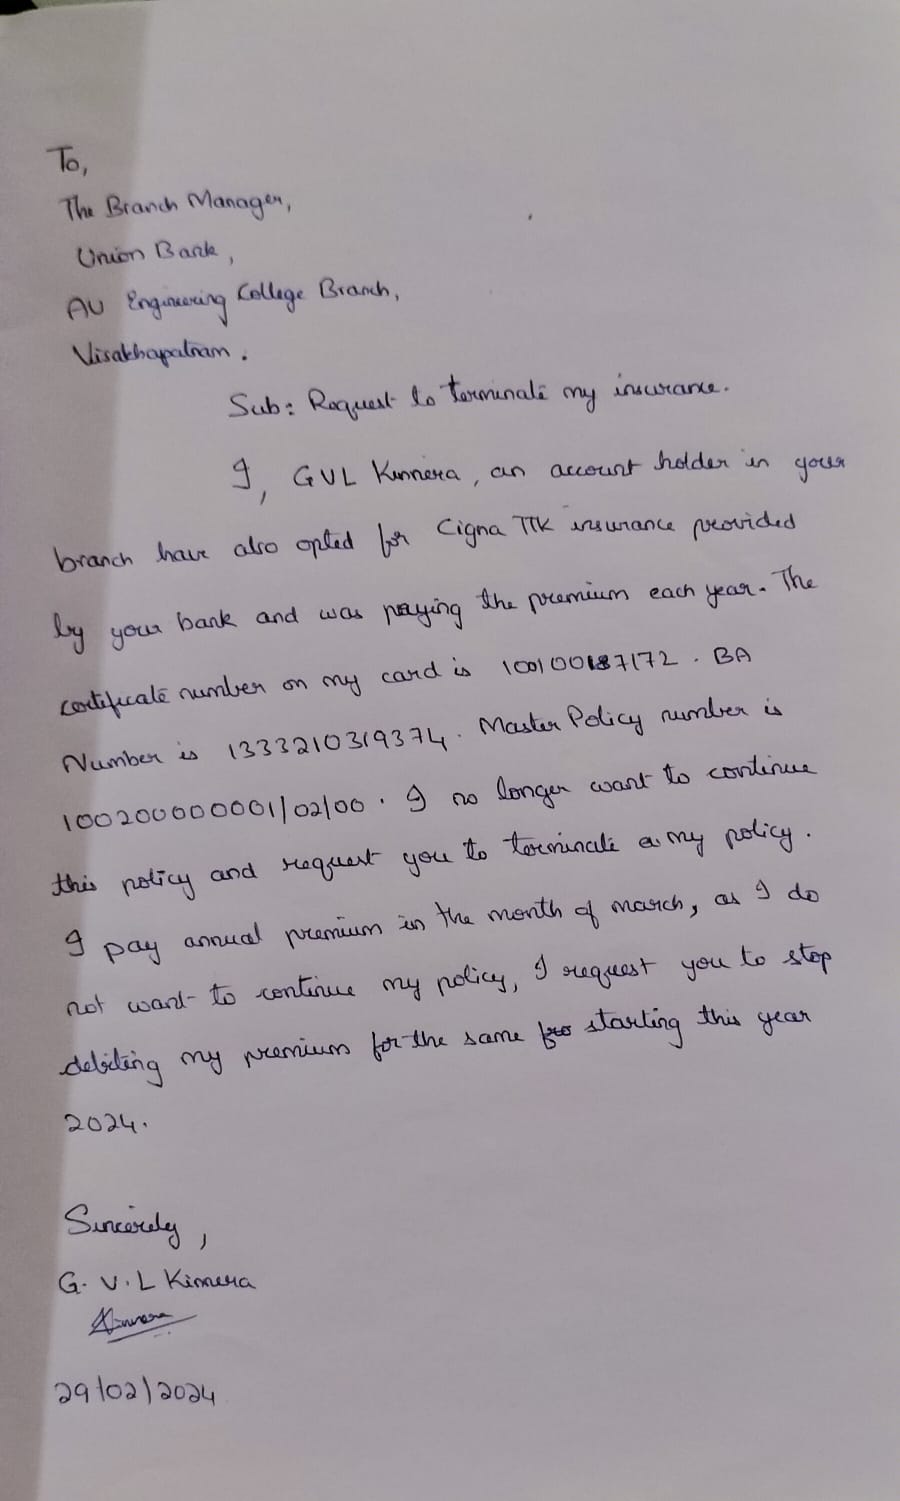 To,
The Branch Manager,
Union Bank,
AU Engineering College Branch,
Visakhapatnam.
Sub: Request to terminate my insurance.
I, GVL Kinnera, an account holder in your
branch have also opted for Cigna TTK insurance provided
by your bank and was paying the premium each year. The
certificate number on my card is 100100187172. BA
Number is 1333210319374. Master Policy number is
100200000001/02/00. I no longer want to continue
this policy and request you to terminate my policy.
I pay annual premium in the month of march, as I do
not want to continue my policy, I request you to stop
debiting my premium for the same starting this year
2024.
Sincerely,
G. V. L Kinnera
Kinnera
29/02/2024